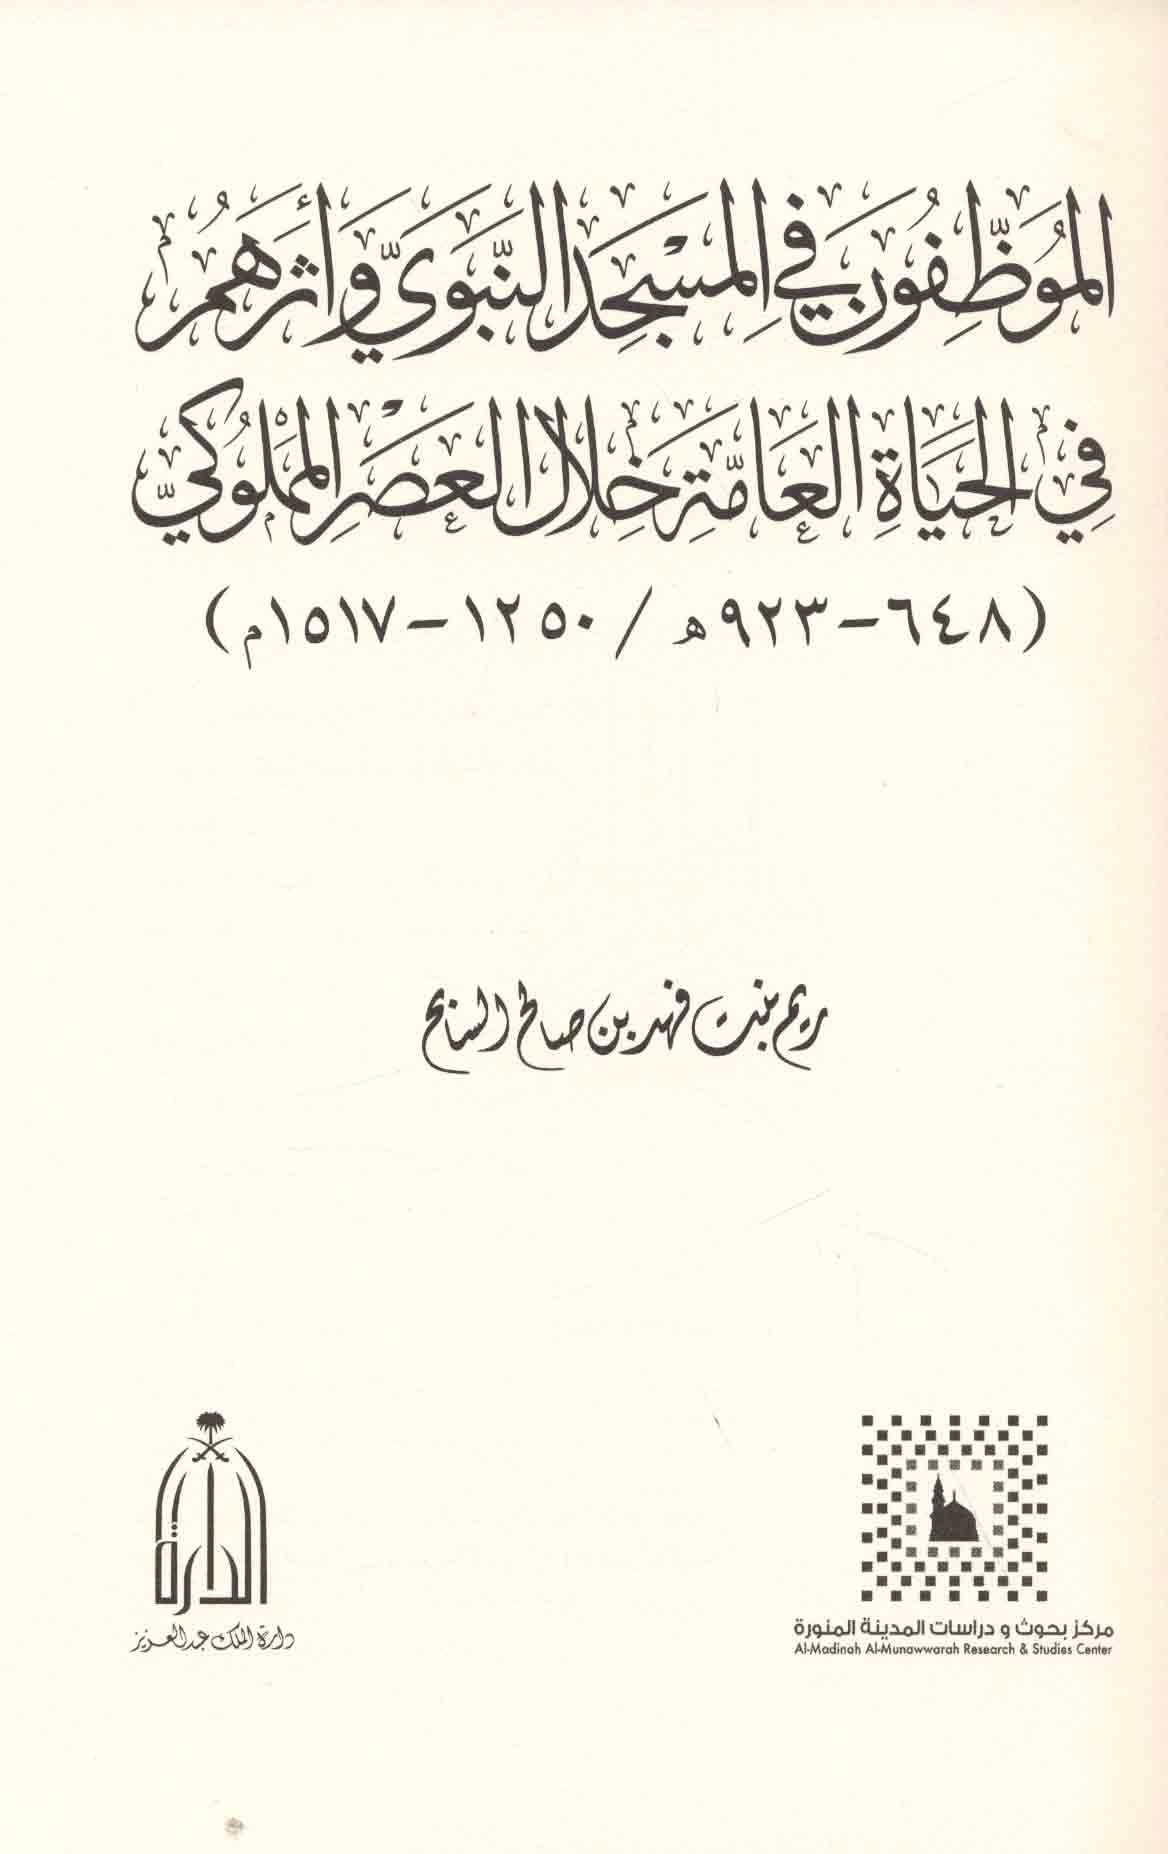 الموظّفون في المسجد النّبويّ وأثرهم
في الحياة العامّة خلال العصر المملوكيّ
(٦٤٨-٩٢٣هـ / ١٢٥٠-١٥١٧م)
ريم بنت فهد بن صالح السابح
الدارة
دارة الملك عبدالعزيز
مركز بحوث و دراسات المدينة المنورة
Al-Madinah Al-Munawwarah Research & Studies Center